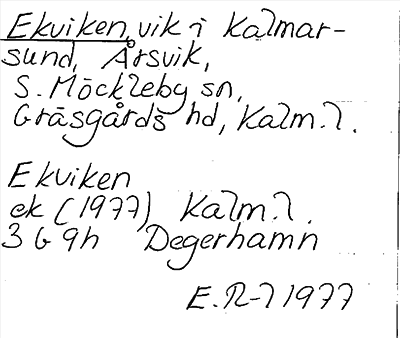 Ekviken, vik i Kalmar-
sund, Årsvik,
S. Möckleby sn,
Gräsgårds hd, Kalm. l.
Ekviken
ek (1977) Kalm. l.
3 G 9h Degerhamn
E. R-l 1977